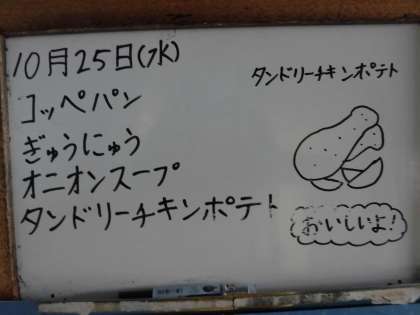 10月25日(水)
コッペパン
ぎゅうにゅう
オニオンスープ
タンドリーチキンポテト
タンドリーチキンポテト
おいしいよ!